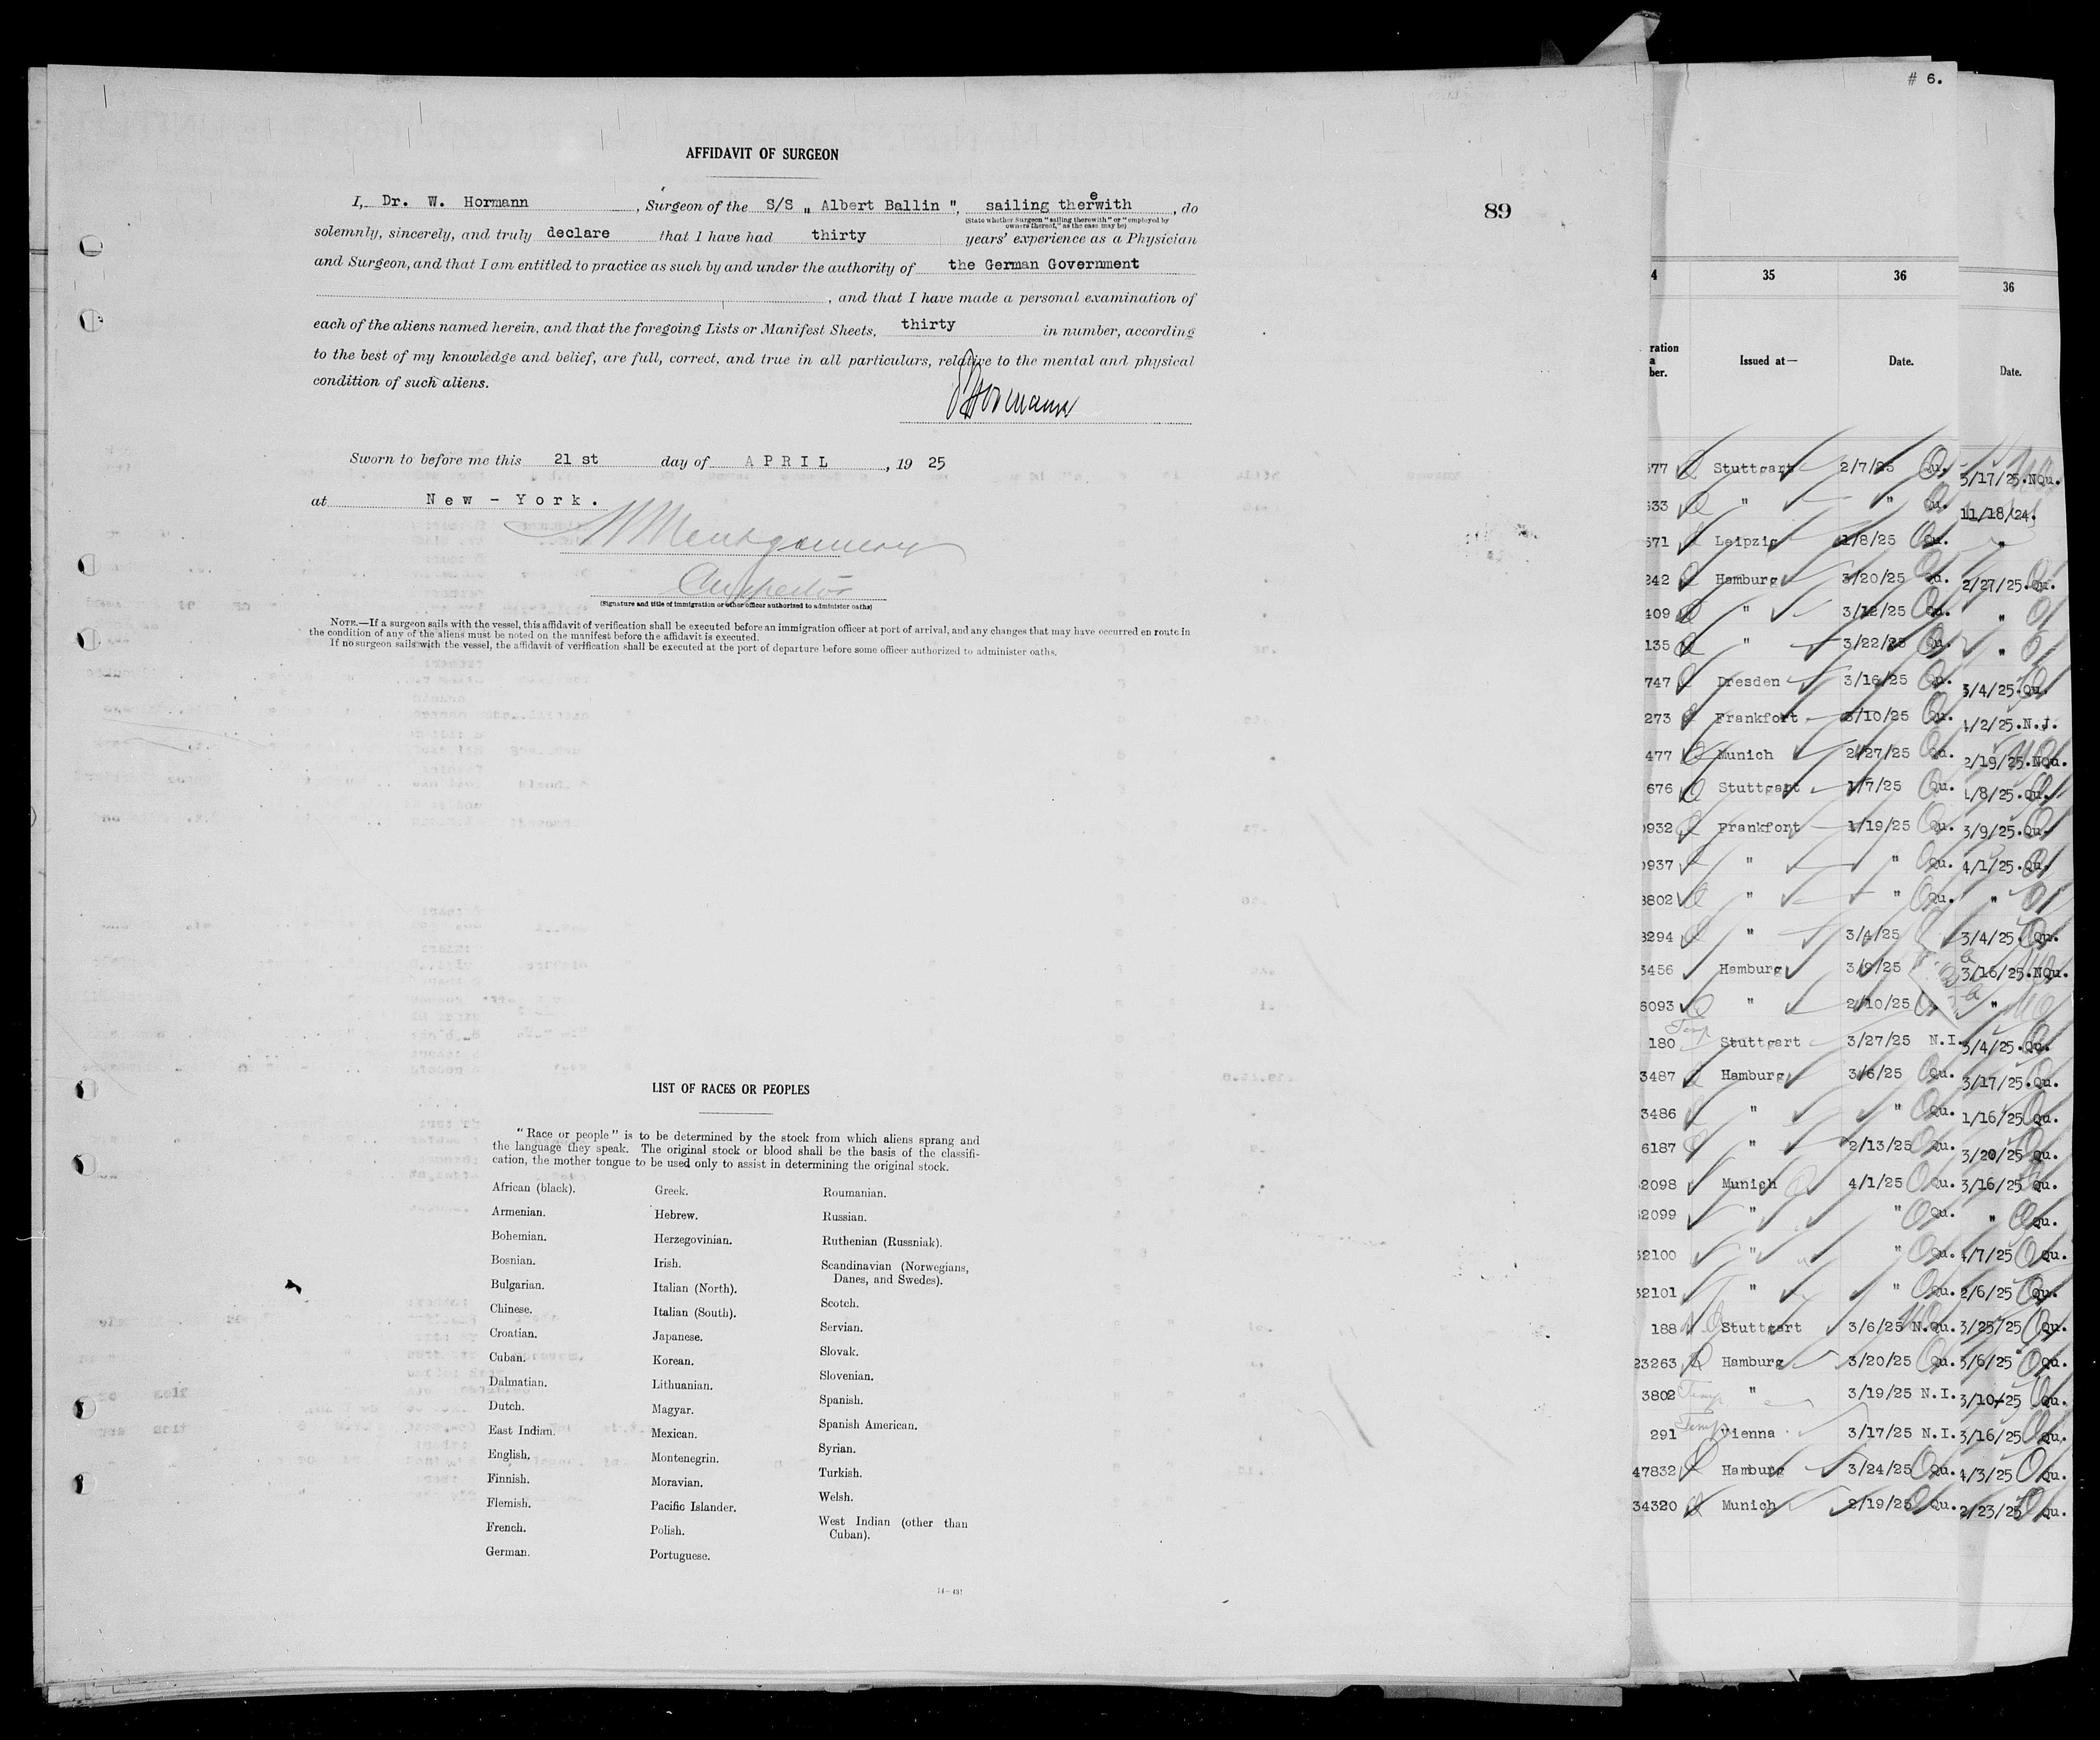 # 6.
AFFIDAVIT OF SURGEON
I, Dr. W. Hormann, Surgeon of the S/S „ Albert Ballin ", sailing therewith, do
e
(State whether Surgeon "sailing therewith" or "employed by
owners thereof," as the case may be)
89
solemnly, sincerely, and truly declare that I have had thirty years' experience as a Physician
and Surgeon, and that I am entitled to practice as such by and under the authority of the German Government
, and that I have made a personal examination of
each of the aliens named herein, and that the foregoing Lists or Manifest Sheets, thirty in number, according
to the best of my knowledge and belief, are full, correct, and true in all particulars, relative to the mental and physical
condition of such aliens.
Hormann
Sworn to before me this 21 st day of APRIL, 19 25
at New - York.
Montgomery
Inspector
(Signature and title of immigration or other officer authorized to administer oaths)
NOTE.—If a surgeon sails with the vessel, this affidavit of verification shall be executed before an immigration officer at port of arrival, and any changes that may have occurred en route in
the condition of any of the aliens must be noted on the manifest before the affidavit is executed.
If no surgeon sails with the vessel, the affidavit of verification shall be executed at the port of departure before some officer authorized to administer oaths.
LIST OF RACES OR PEOPLES
"Race or people" is to be determined by the stock from which aliens sprang and
the language they speak. The original stock or blood shall be the basis of the classifi-
cation, the mother tongue to be used only to assist in determining the original stock.
African (black).
Armenian.
Bohemian.
Bosnian.
Bulgarian.
Chinese.
Croatian.
Cuban.
Dalmatian.
Dutch.
East Indian.
English.
Finnish.
Flemish.
French.
German.
Greek.
Hebrew.
Herzegovinian.
Irish.
Italian (North).
Italian (South).
Japanese.
Korean.
Lithuanian.
Magyar.
Mexican.
Montenegrin.
Moravian.
Pacific Islander.
Polish.
Portuguese.
Roumanian.
Russian.
Ruthenian (Russniak).
Scandinavian (Norwegians,
Danes, and Swedes).
Scotch.
Servian.
Slovak.
Slovenian.
Spanish.
Spanish American.
Syrian.
Turkish.
Welsh.
West Indian (other than
Cuban).
4 35 36 36
ration
a
ber.
Issued at— Date. Date.
577 Stuttgart 2/7/25 Qu. 3/17/25.NQu.
533 " " Qu. 11/18/24.
571 Leipzig 1/8/25 Qu. "
242 Hamburg 3/20/25 Qu. 2/27/25.Qu.
409 " 3/12/25 Qu. "
135 " 3/22/25 Qu. "
747 Dresden 3/16/25 Qu. 3/4/25.Qu.
273 Frankfort 3/10/25 Qu. 4/2/25.N.I.
477 Munich 2/27/25 Qu. 2/19/25.NQu.
676 Stuttgart 1/7/25 Qu. 1/8/25.Qu.
0932 Frankfort 1/19/25 Qu. 3/9/25.Qu.
0937 " " Qu. 4/1/25.Qu.
3802 " " Qu. "
3294 " 3/4/25 3/4/25.Qu.
3456 Hamburg 3/9/25 3/16/25.NQu.
6093 " 2/10/25 "
180 Temp Stuttgart 3/27/25 N.I. 3/4/25.Qu.
3487 Hamburg 3/6/25 Qu. 3/17/25.Qu.
3486 " " Qu. 1/16/25 Qu.
6187 " 2/13/25 Qu. 3/20/25 Qu.
2098 Munich 4/1/25 Qu. 3/16/25 Qu.
2099 " " Qu. " Qu.
2100 " " Qu. 4/7/25 Qu.
2101 " " Qu. 2/6/25 Qu.
188 Stuttgart 3/6/25 N.Qu. 3/25/25 Qu.
23263 Hamburg 3/20/25 Qu. 3/6/25 Qu.
3802 Temp " 3/19/25 N.I. 3/10/25 Qu.
291 Temp Vienna 3/17/25 N.I. 3/16/25 Qu.
47832 Hamburg 3/24/25 Qu. 4/3/25 Qu.
34320 Munich 2/19/25 Qu. 2/23/25 Qu.